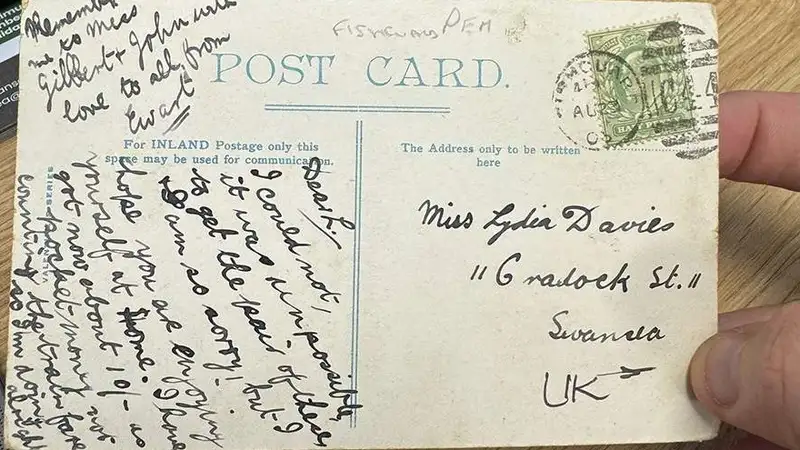 Remember
me to Miss
Gilbert & John with
love to all from
Ewart
FISHGUARD PEM
POST CARD.
For INLAND Postage only this
space may be used for communication.
The Address only to be written
here
AU 23
Dear L,
I could not,
it was impossible,
to get the pair of these
I am so sorry! but I
hope you are enjoying
yourself at home. I have
got now about 10/- as
pocket money not
counting the train fare
so I'm doing
alright
Miss Lydia Davies
"Cradock St."
Swansea
UK